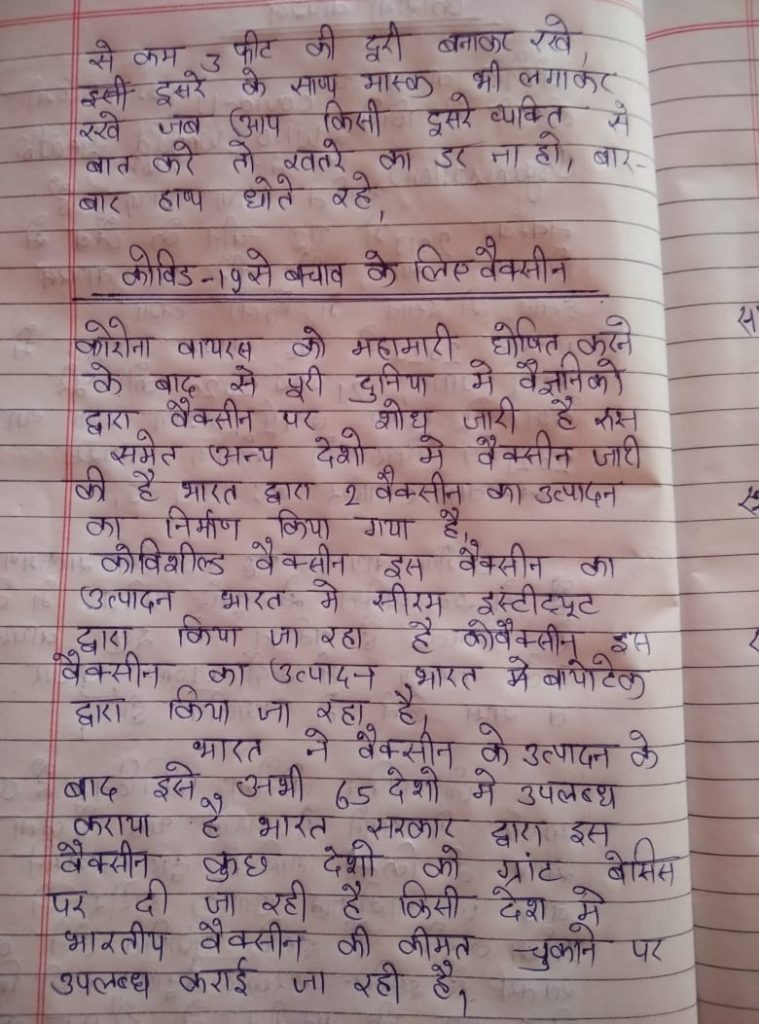 से कम 3 फीट की दूरी बनाकर रखे,
इसी दूसरे के साथ मास्क भी लगाकर
रखे जब आप किसी दूसरे व्यक्ति से
बात करे तो खतरे का डर ना हो, बार-
बार हाथ धोते रहे,
कोविड-19 से बचाव के लिए वैक्सीन
कोरोना वायरस को महामारी घोषित करने
के बाद से पूरी दुनिया मे वैज्ञनिको
द्वारा वैक्सीन पर शोध जारी है रूस
समेत अन्य देशो मे वैक्सीन जारी
की है भारत द्वारा 2 वैक्सीन का उत्पादन
का निर्माण किया गया है,
कोविशील्ड वैक्सीन इस वैक्सीन का
उत्पादन भारत मे सीरम इंस्टीट्यूट
द्वारा किया जा रहा है कोवैक्सीन इस
वैक्सीन का उत्पादन भारत मे बायोटेक
द्वारा किया जा रहा है,
भारत ने वैक्सीन के उत्पादन के
बाद इसे अभी 65 देशो मे उपलब्ध
कराया है भारत सरकार द्वारा इस
वैक्सीन कुछ देशो को ग्रांट बेसिस
पर दी जा रही है किसी देश मे
भारतीय वैक्सीन की कीमत चुकाने पर
उपलब्ध कराई जा रही है,